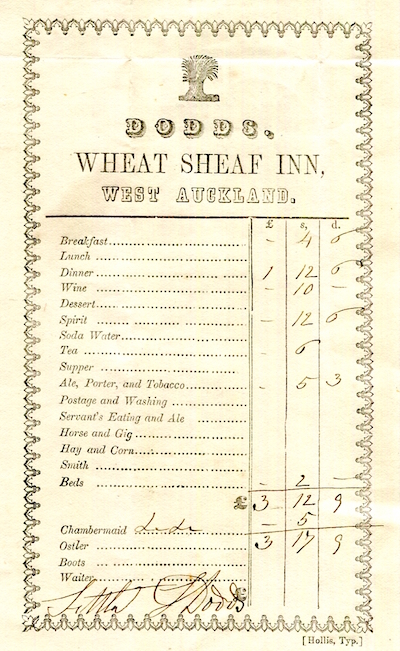 DODDS,
WHEAT SHEAF INN,
WEST AUCKLAND.
£ s, d.
Breakfast - 4 6
Lunch
Dinner 1 12 6
Wine - 10 -
Dessert
Spirit - 12 6
Soda Water
Tea - 6
Supper
Ale, Porter, and Tobacco - 5 3
Postage and Washing
Servant's Eating and Ale
Horse and Gig
Hay and Corn
Smith
Beds - 2 -
£ 3 12 9
Chambermaid - 5
Ostler 3 17 9
Boots
Waiter
£
Dodds
[Hollis, Typ.]